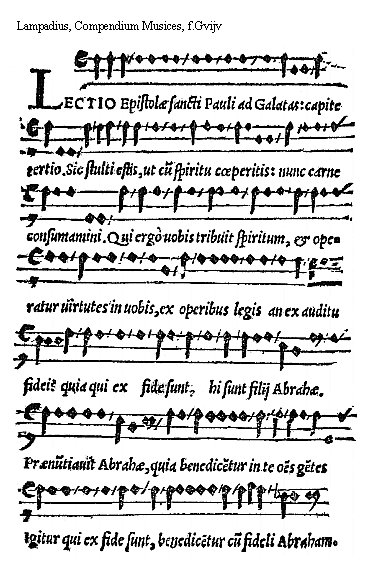 Lampadius, Compendium Musices, f.Gvijv
LECTIO Epistolæ sancti Pauli ad Galatas: capite
tertio. Sic stulti estis, ut cũ spiritu cœperitis: nunc carne
consumamini. Qui ergò uobis tribuit spiritum, & ope-
ratur uirtutes in uobis, ex operibus legis an ex auditu
fidei? quia qui ex fide sunt, hi sunt filij Abrahæ.
Abrahæ, quia benedicẽtur in te oẽs gẽtes
Igitur qui ex fide sunt, benedicẽtur cũ fideli Abraham.